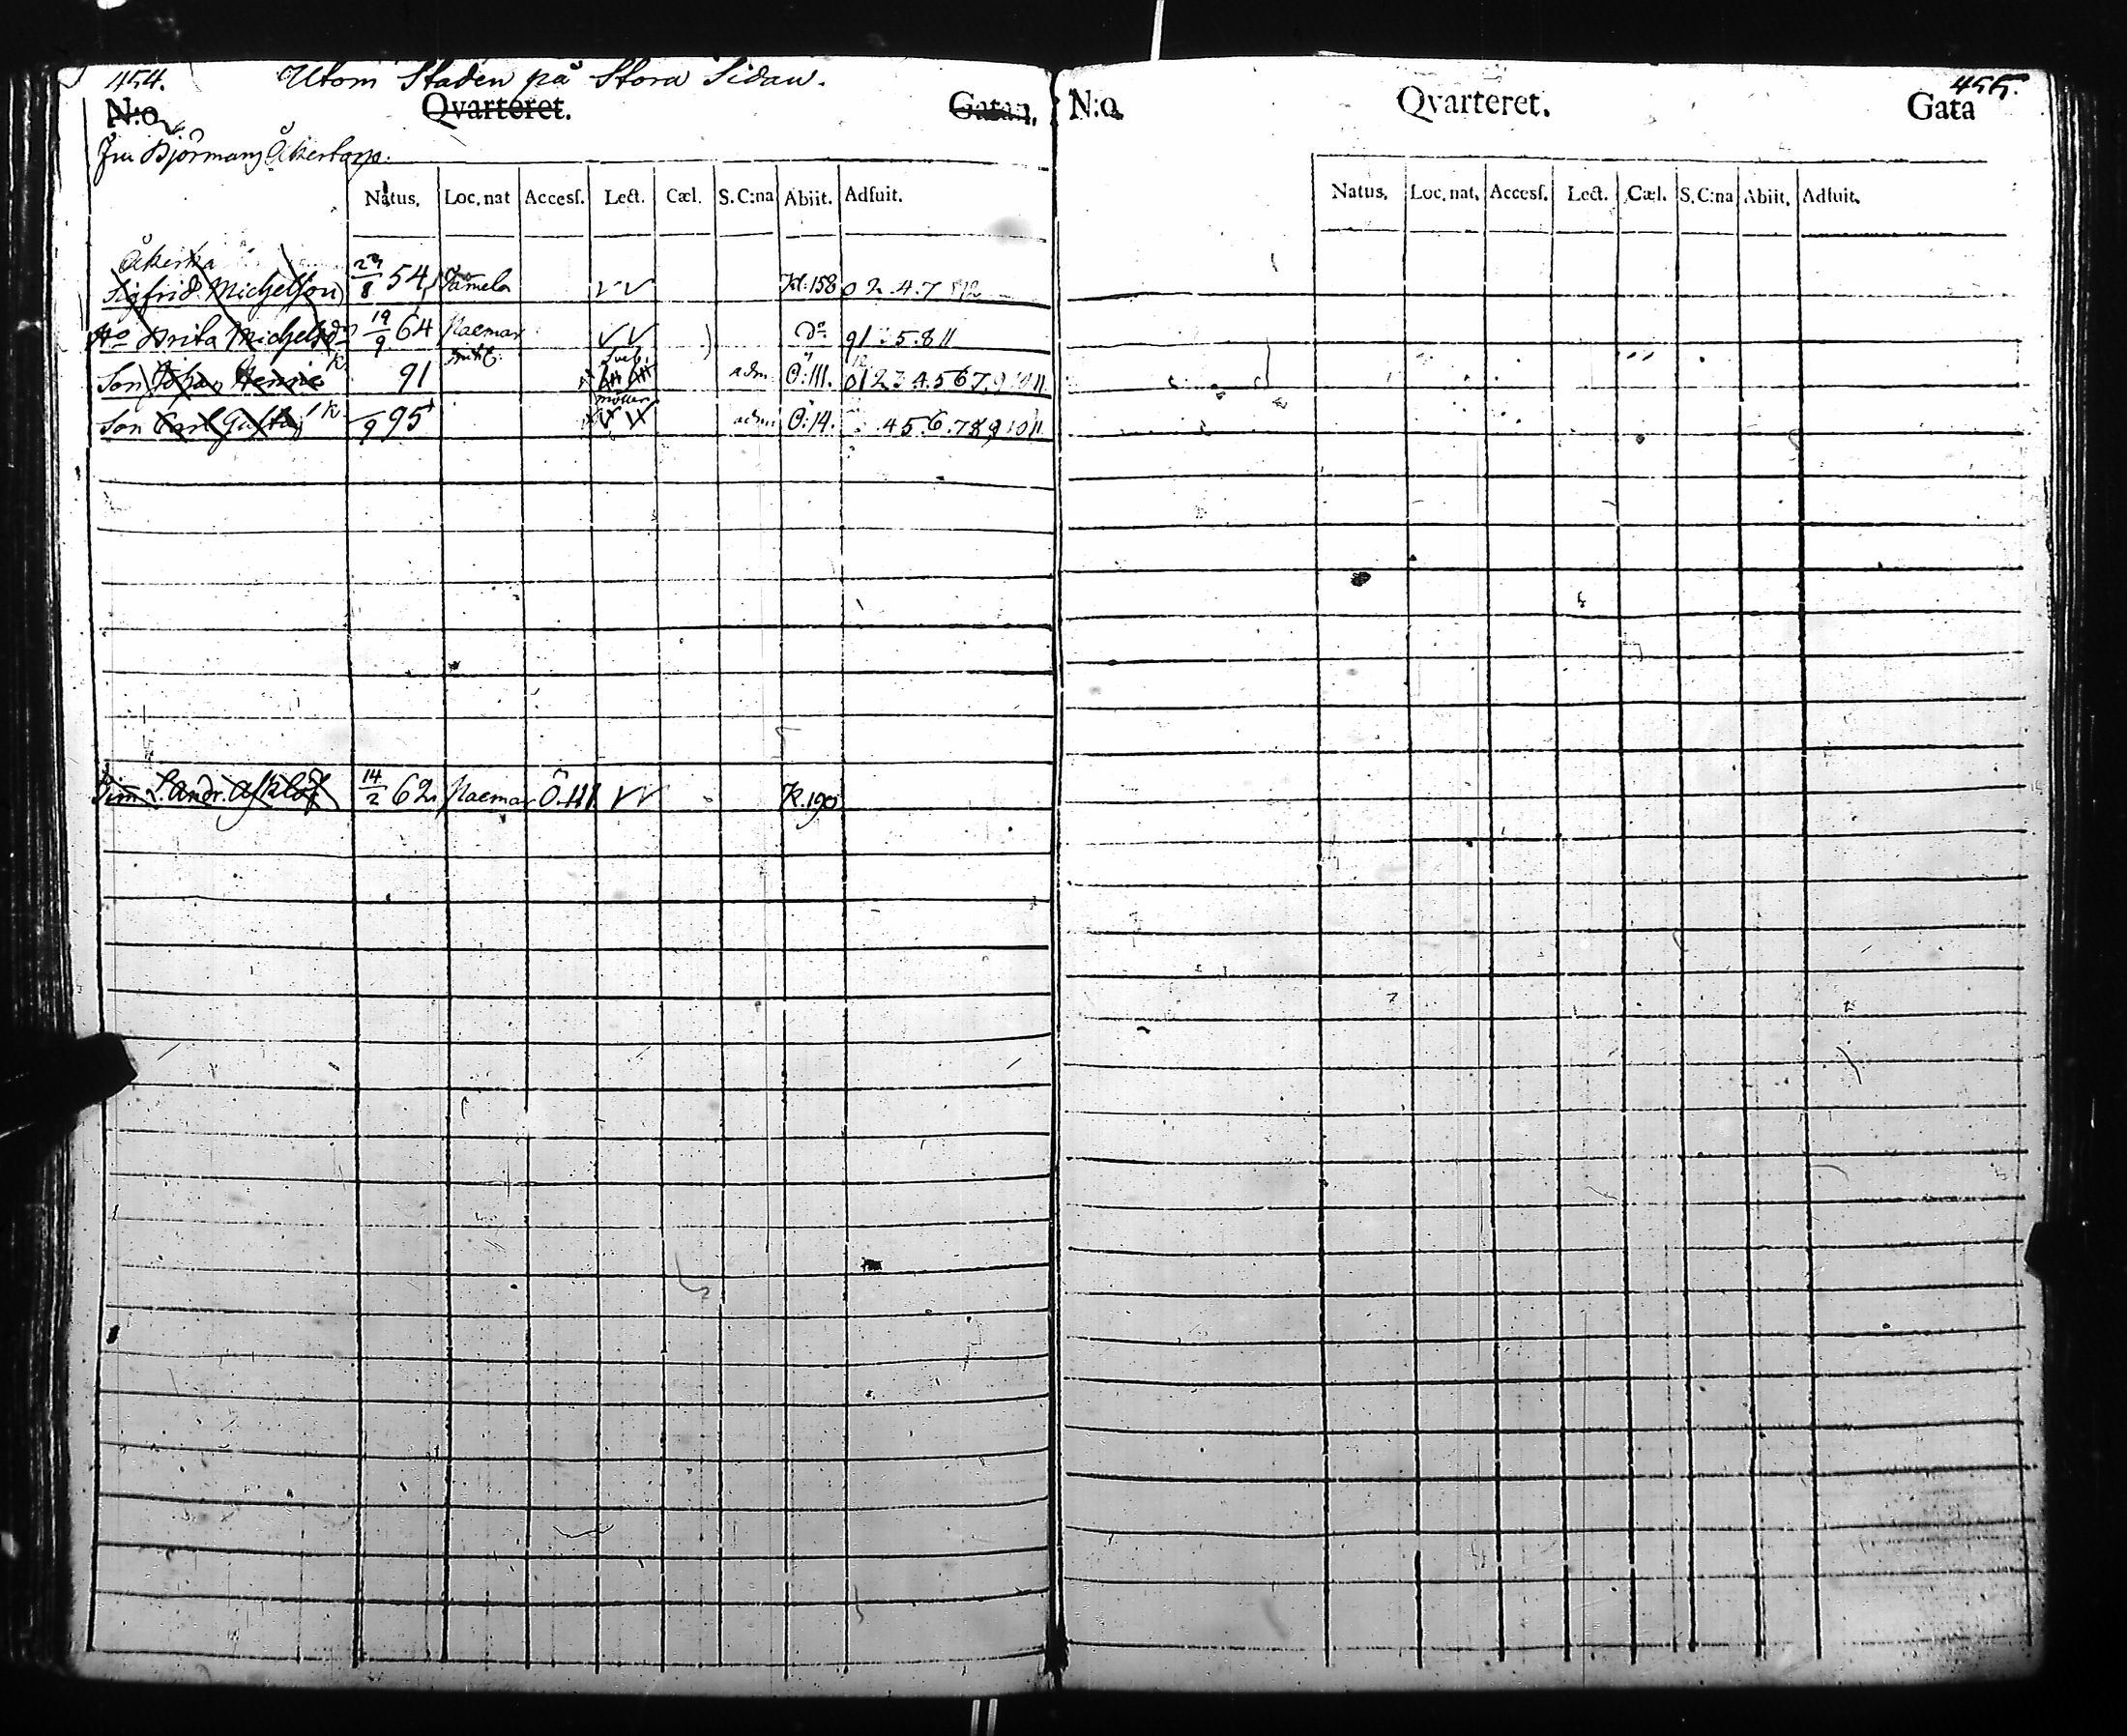 454. Utom Staden på Stora Sidan.
N:o Qvarteret. Gatan.
Fru Björmans Åkertorp.
Natus. Loc. nat Accesſ. Lect. Cæl. S. C:na Abiit. Adſuit.
Åkerka
Sigfrid Michelſon 29/8 54 Jämela VV Kl. 158 0 2 4. 7
Ho Brita Michelsdr 19/9 64 Raemar VV do 91 5. 8 11
Sveb.
Son Johan Hennic k 91 adm Ö: 111. 0 1 2 3 4. 5 6 7. 9 10 11
möller
Son Carl Gustaf k /9 95 VV adm Ö: 14. 4 5. 6. 7 8 9 10 11
Tim. L. Andr. Asklöf 14/2 62 Raemar Ö. 111 VV K. 190
455.
N:o. Qvarteret. Gata
Natus. Loc. nat. Accesſ. Lect. Cæl. S. C:na Abiit. Adſuit.